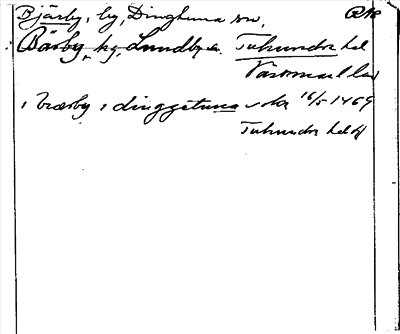 Bjärby, by, Dingtuna sn,
Bärby, by, Lundby sn. Tuhundra hd
Västmanland
i bærby i dinggetuna sokn 16/5 1469
Tuhundra hd